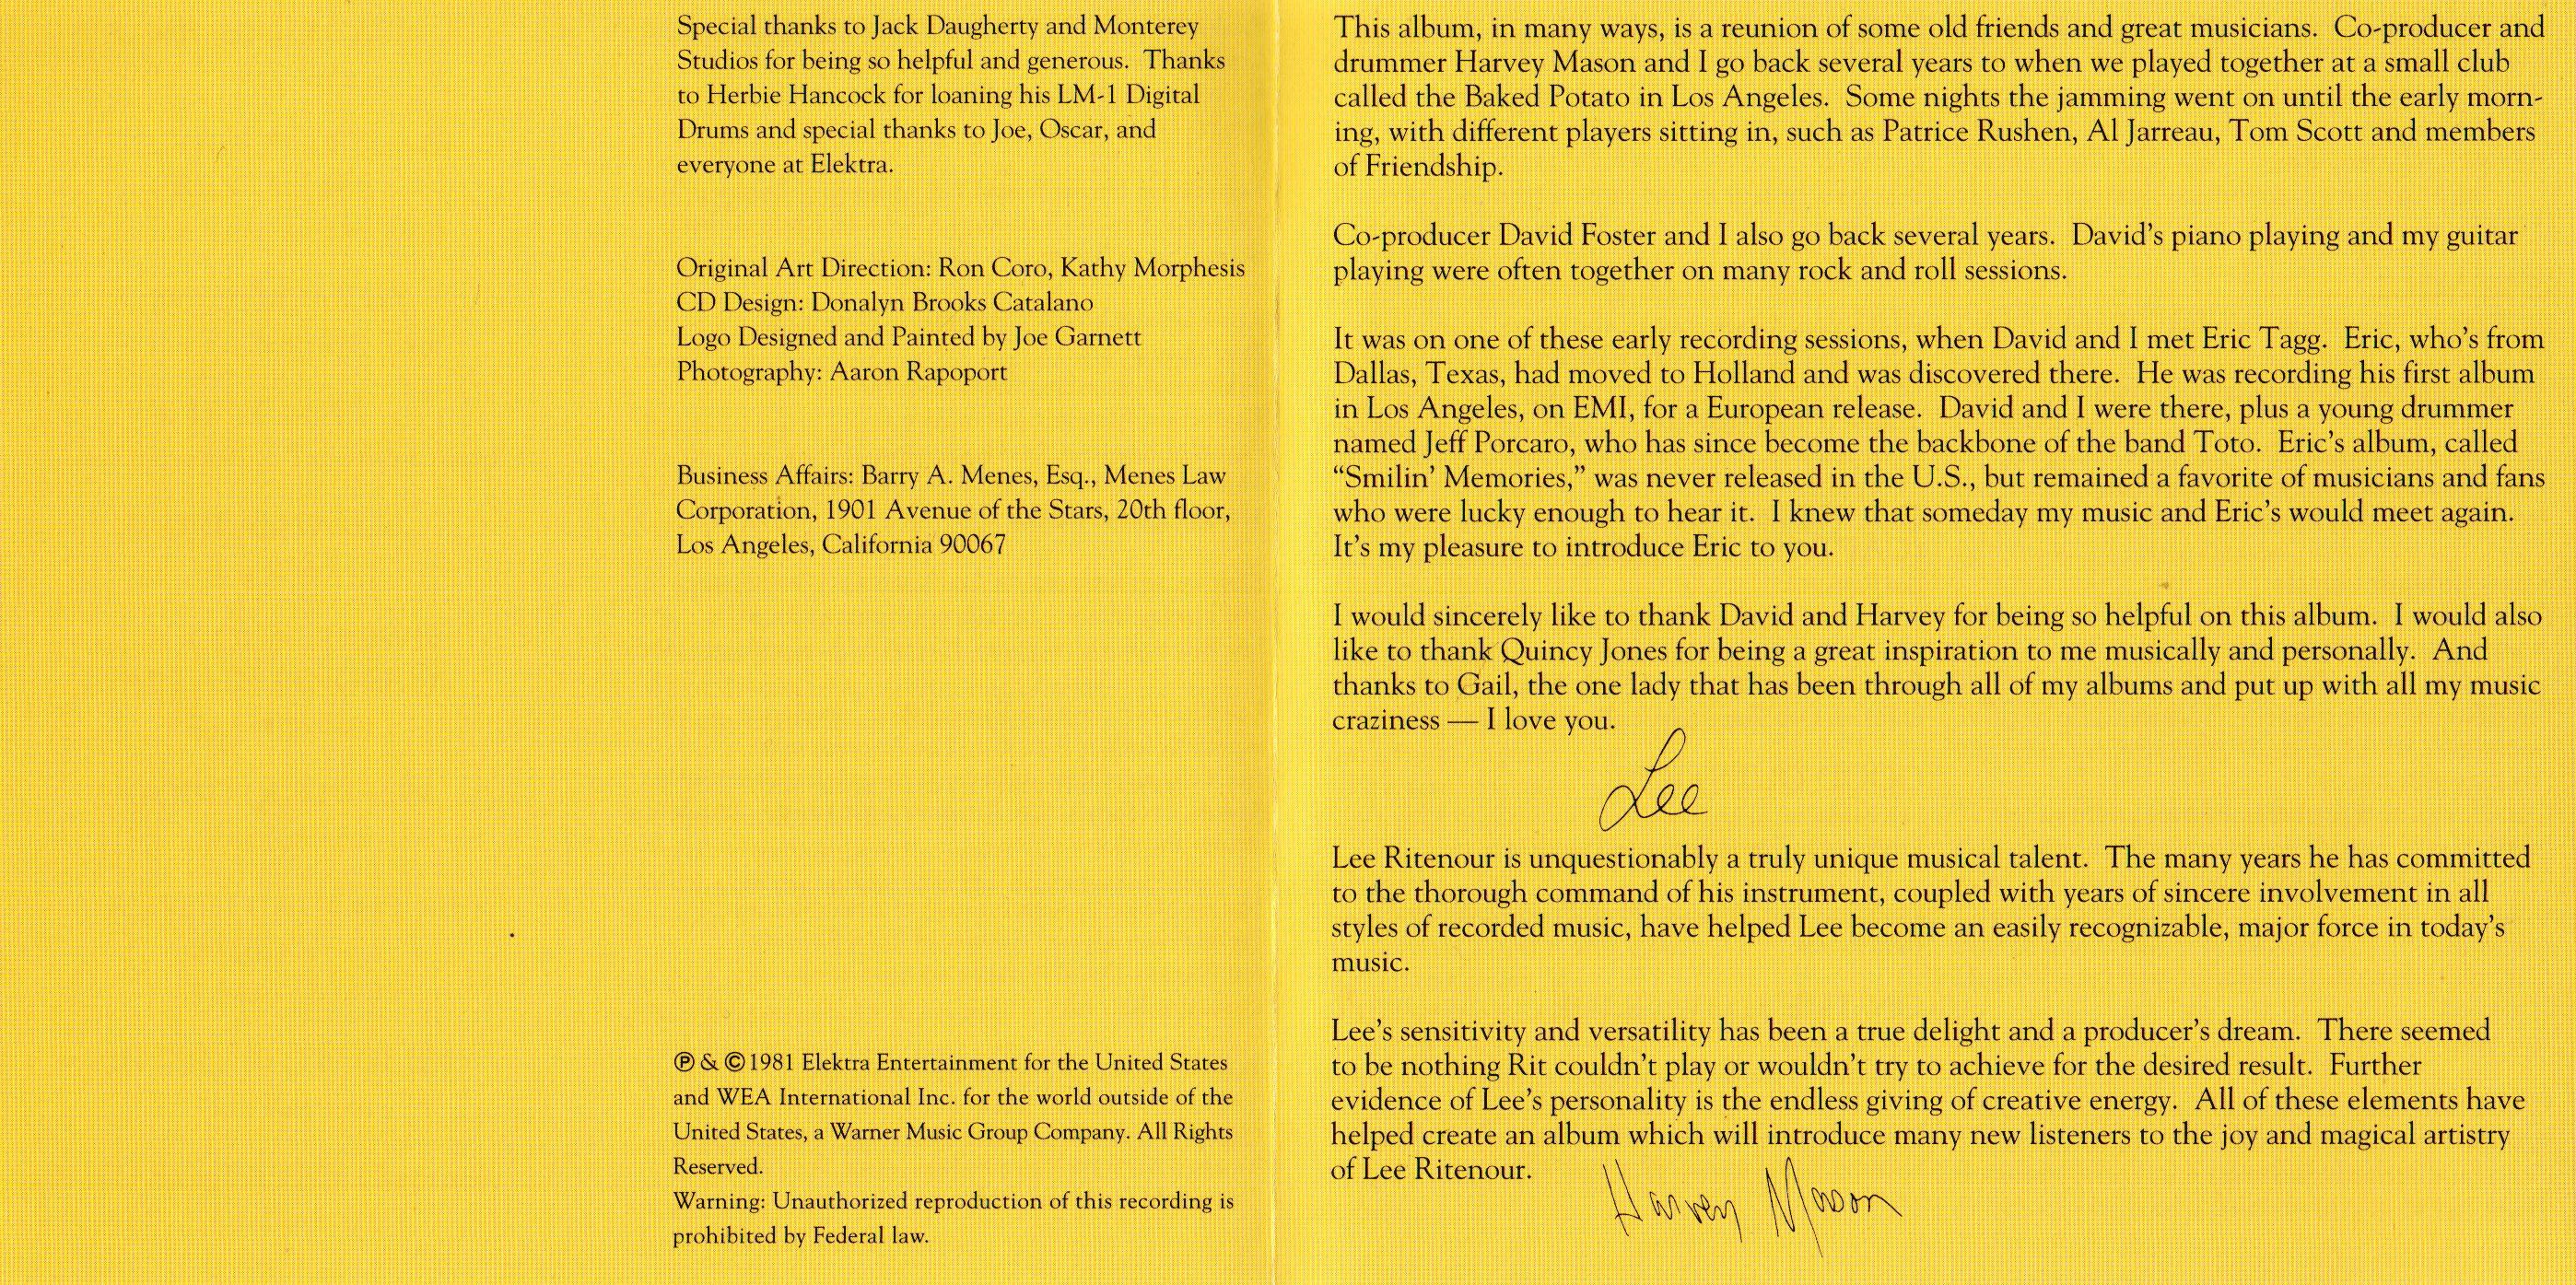 Special thanks to Jack Daugherty and Monterey
Studios for being so helpful and generous. Thanks
to Herbie Hancock for loaning his LM-1 Digital
Drums and special thanks to Joe, Oscar, and
everyone at Elektra.
Original Art Direction: Ron Coro, Kathy Morphesis
CD Design: Donalyn Brooks Catalano
Logo Designed and Painted by Joe Garnett
Photography: Aaron Rapoport
Business Affairs: Barry A. Menes, Esq., Menes Law
Corporation, 1901 Avenue of the Stars, 20th floor,
Los Angeles, California 90067
℗ & ©1981 Elektra Entertainment for the United States
and WEA International Inc. for the world outside of the
United States, a Warner Music Group Company. All Rights
Reserved.
Warning: Unauthorized reproduction of this recording is
prohibited by Federal law.
This album, in many ways, is a reunion of some old friends and great musicians. Co-producer and
drummer Harvey Mason and I go back several years to when we played together at a small club
called the Baked Potato in Los Angeles. Some nights the jamming went on until the early morn-
ing, with different players sitting in, such as Patrice Rushen, Al Jarreau, Tom Scott and members
of Friendship.
Co-producer David Foster and I also go back several years. David's piano playing and my guitar
playing were often together on many rock and roll sessions.
It was on one of these early recording sessions, when David and I met Eric Tagg. Eric, who's from
Dallas, Texas, had moved to Holland and was discovered there. He was recording his first album
in Los Angeles, on EMI, for a European release. David and I were there, plus a young drummer
named Jeff Porcaro, who has since become the backbone of the band Toto. Eric's album, called
“Smilin' Memories,” was never released in the U.S., but remained a favorite of musicians and fans
who were lucky enough to hear it. I knew that someday my music and Eric's would meet again.
It's my pleasure to introduce Eric to you.
I would sincerely like to thank David and Harvey for being so helpful on this album. I would also
like to thank Quincy Jones for being a great inspiration to me musically and personally. And
thanks to Gail, the one lady that has been through all of my albums and put up with all my music
craziness — I love you.
Lee
Lee Ritenour is unquestionably a truly unique musical talent. The many years he has committed
to the thorough command of his instrument, coupled with years of sincere involvement in all
styles of recorded music, have helped Lee become an easily recognizable, major force in today's
music.
Lee's sensitivity and versatility has been a true delight and a producer's dream. There seemed
to be nothing Rit couldn't play or wouldn't try to achieve for the desired result. Further
evidence of Lee's personality is the endless giving of creative energy. All of these elements have
helped create an album which will introduce many new listeners to the joy and magical artistry
of Lee Ritenour.
Harvey Mason